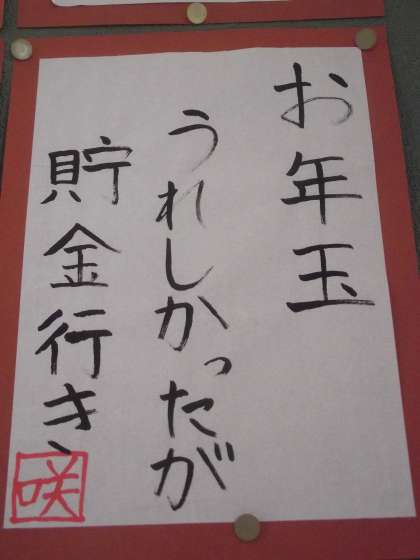 お年玉
うれしかったが
貯金行き、
咲